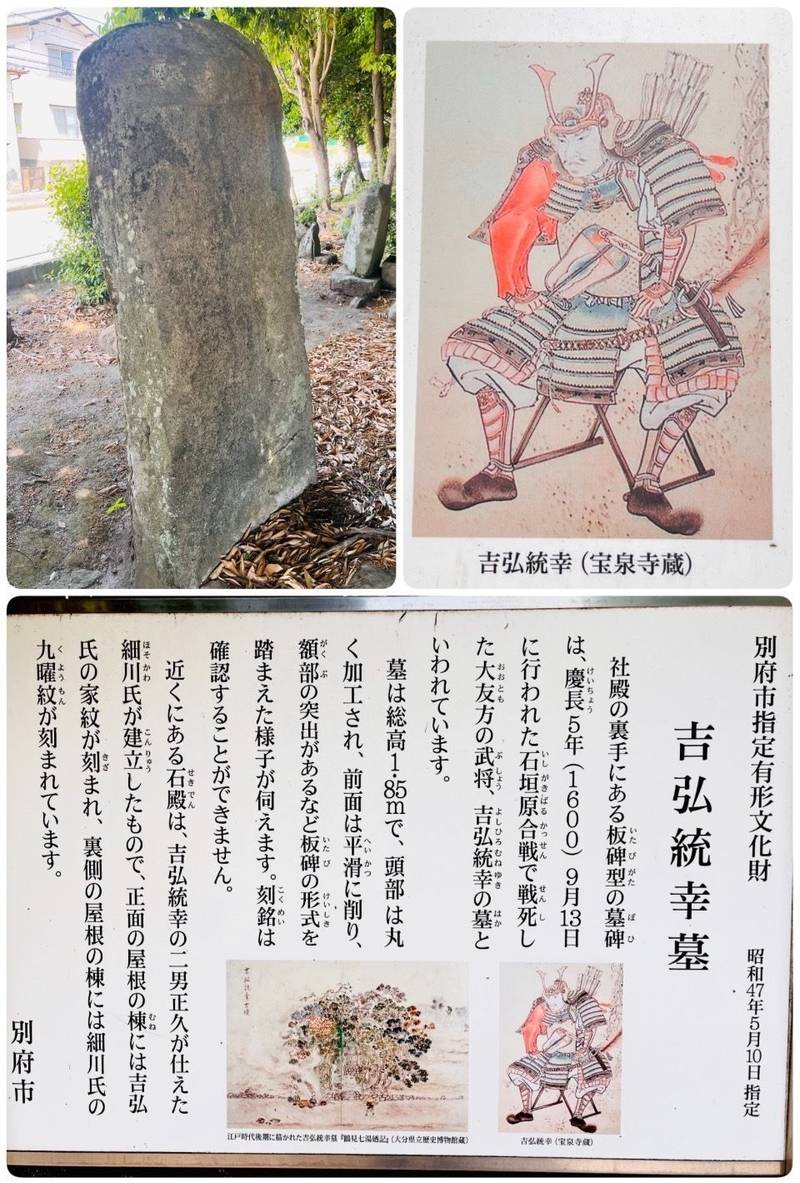 吉弘統幸（宝泉寺蔵）
別府市指定有形文化財
昭和47年5月10日 指定
吉弘統幸墓
社殿の裏手にある板碑型の墓碑
は、慶長5年（1600）9月13日
に行われた石垣原合戦で戦死し
た大友方の武将、吉弘統幸の墓と
いわれています。
墓は総高1.85mで、頭部は丸
く加工され、前面は平滑に削り、
額部の突出があるなど板碑の形式を
踏まえた様子が伺えます。刻銘は
確認することができません。
近くにある石殿は、吉弘統幸の二男正久が仕えた
細川氏が建立したもので、正面の屋根の棟には吉弘
氏の家紋が刻まれ、裏側の屋根の棟には細川氏の
九曜紋が刻まれています。
別府市
吉弘統幸（宝泉寺蔵）
江戸時代後期に描かれた吉弘統幸墓『鶴見七湯廼記』（大分県立歴史博物館蔵）